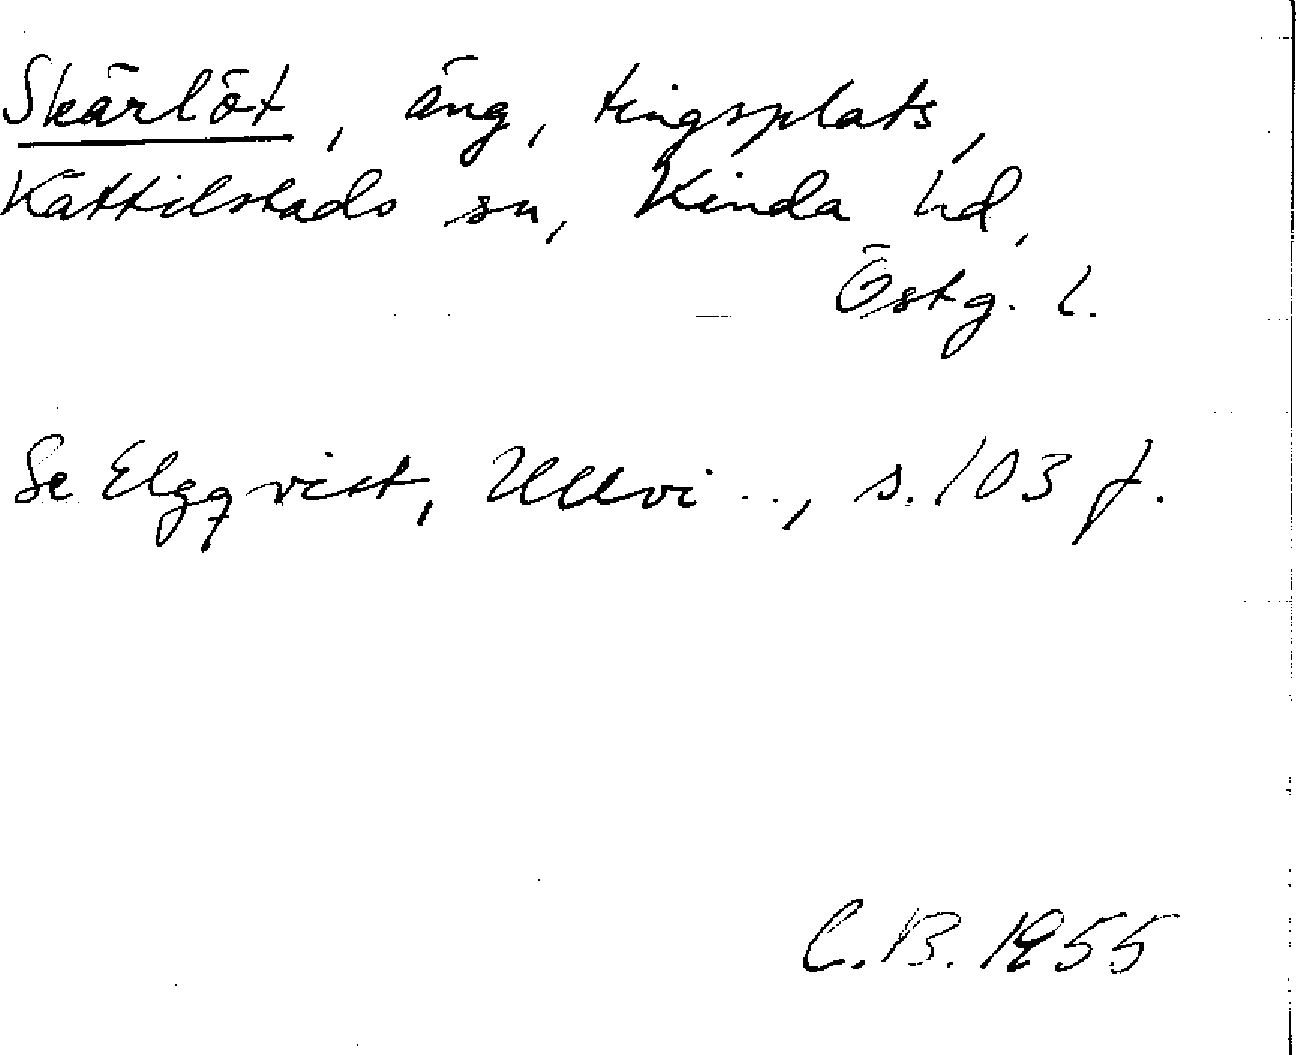 Skärlöt, äng, tingsplats,
Kättilstads sn, Kinda hd,
Östg. l.
Se Elgqvist, Ullvi .., s. 103 f.
C.B. 1955